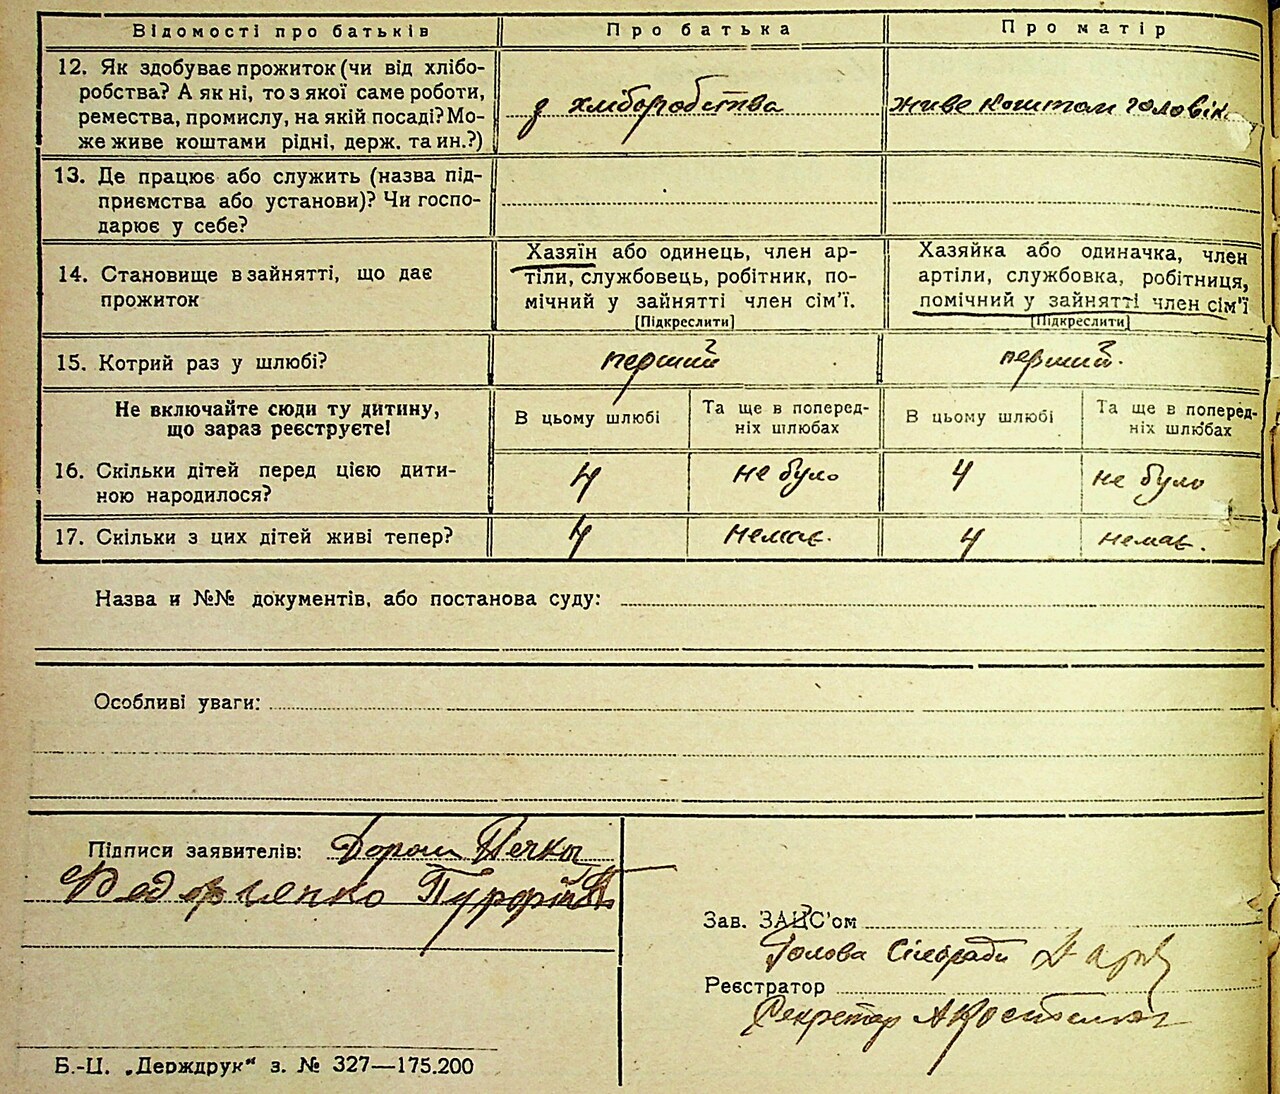 Відомості про батьків Про батька Про матір
12. Як здобуває прожиток (чи від хлібо-
робства? А як ні, то з якої саме роботи,
ремества, промислу, на якій посаді? Мо-
же живе коштами рідні, держ. та ин.?)
з хліборобства
живе коштом чоловік
13. Де працює або служить (назва під-
приємства або установи)? Чи госпо-
дарює у себе?
14. Становище в зайнятті, що дає
прожиток
Хазяїн або одинець, член ар-
тіли, службовець, робітник, по-
мічний у зайнятті член сім'ї.
[Підкреслити]
Хазяйка або одиначка, член
артіли, службовка, робітниця,
помічний у зайнятті член сім'ї
[Підкреслити]
15. Котрий раз у шлюбі? перший перший.
Не включайте сюди ту дитину,
що зараз реєструєте!
В цьому шлюбі
Та ще в поперед-
ніх шлюбах
В цьому шлюбі
Та ще в поперед-
ніх шлюбах
16. Скільки дітей перед цією дити-
ною народилося?
4 не було 4 не було
17. Скільки з цих дітей живі тепер? 4 немає. 4 немає.
Назва и №№ документів, або постанова суду:
Особливі уваги:
Підписи заявителів:
Зав. ЗАЦС'ом
Голова Сільради
Реєстратор
Секретар
Б.-Ц. „Держдрук" з. № 327—175.200